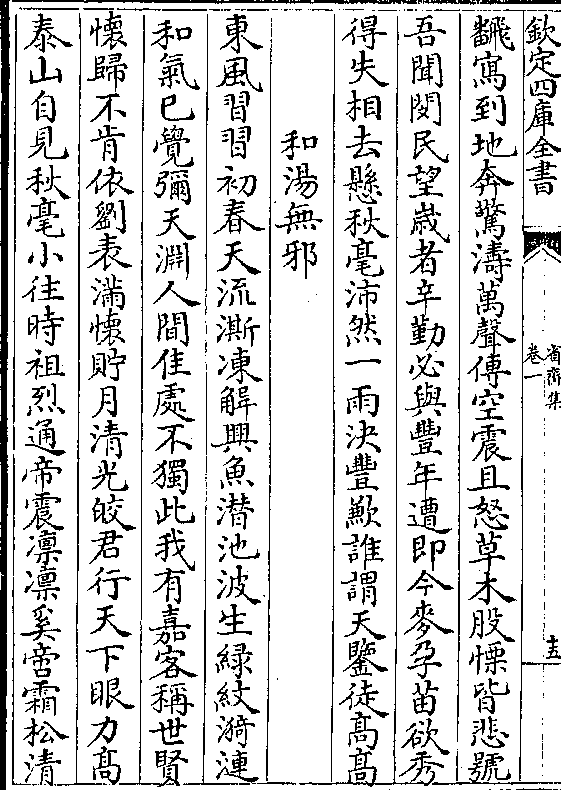 欽定四庫全書
省齋集
卷一
十五
飜寫到地奔驚濤萬聲傳空震且怒草木股慄皆悲號
吾聞閔民望歲者辛勤必與豐年遭即今麥孕苗欲秀
得失相去懸秋毫沛然一雨決豐歉誰謂天鑒徒髙髙
和湯無邪
東風習習初春天流澌凍解興魚潜池波生緑紋漪漣
和氣已覺彌天淵人間佳處不獨此我有嘉客稱世賢
懷歸不肯依劉表滿懷貯月清光皎君行天下眼力髙
泰山自見秋毫小往時祖烈通帝震凛凛奚啻霜松清